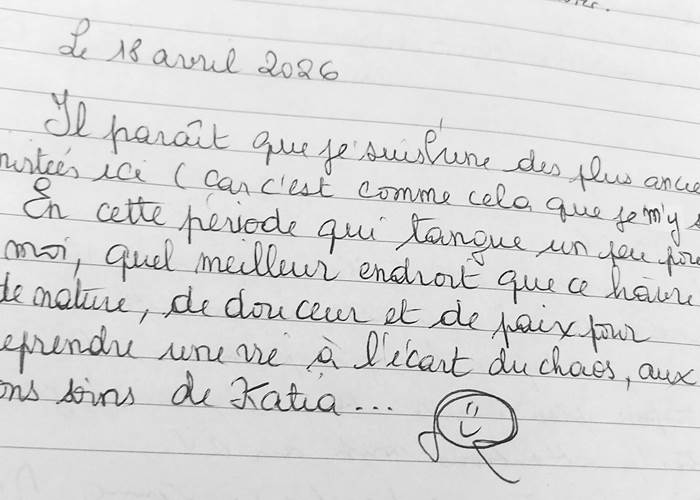 Le 18 avril 2026
Il paraît que je suis l'une des plus ancie
nvitées ici (car c'est comme cela que je m'y s
En cette période qui tangue un peu pour
moi, quel meilleur endroit que ce hâvre
de nature, de douceur et de paix pour
eprendre une vie à l'écart du chaos, aux
ons soins de Katia...